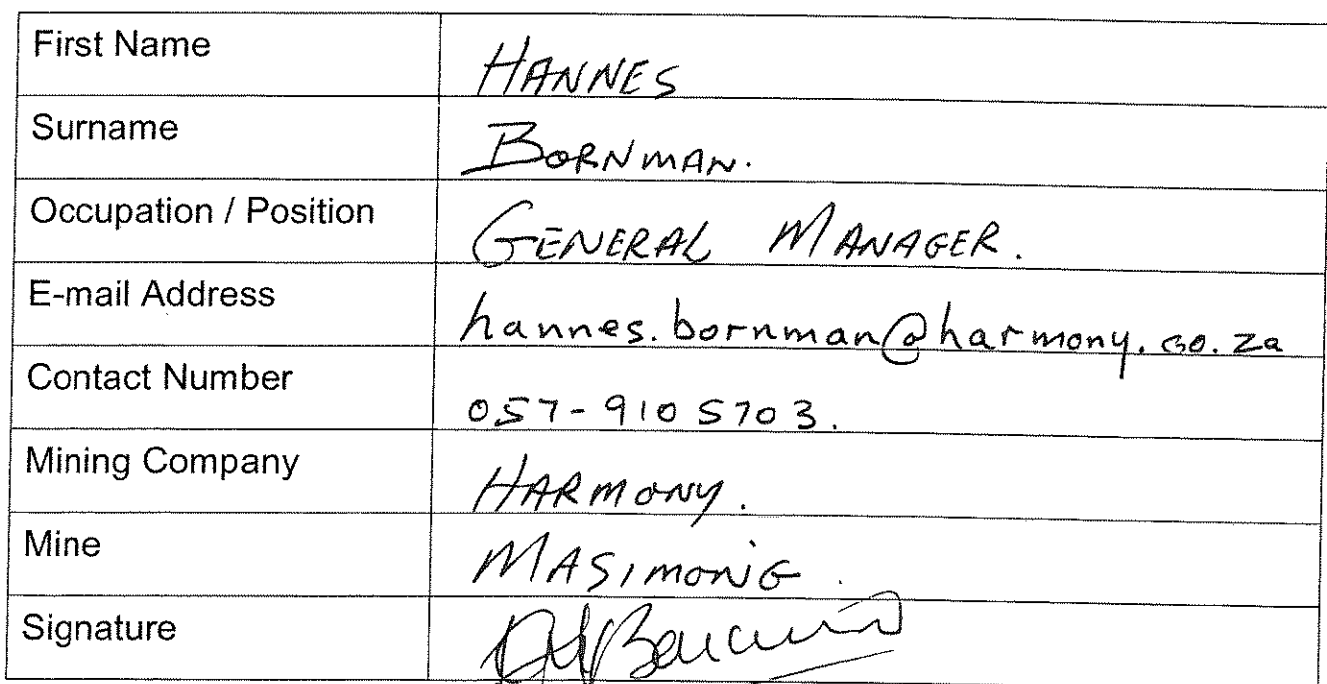 First Name HANNES
Surname BORNMAN.
Occupation / Position GENERAL MANAGER.
E-mail Address hannes.bornman@harmony.co.za
Contact Number 057-910 5703.
Mining Company HARMONY.
Mine MASIMONG.
Signature